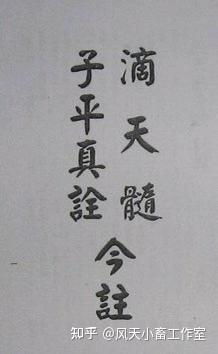 滴天髓
子平真詮
今註
知乎 @风天小畜工作室